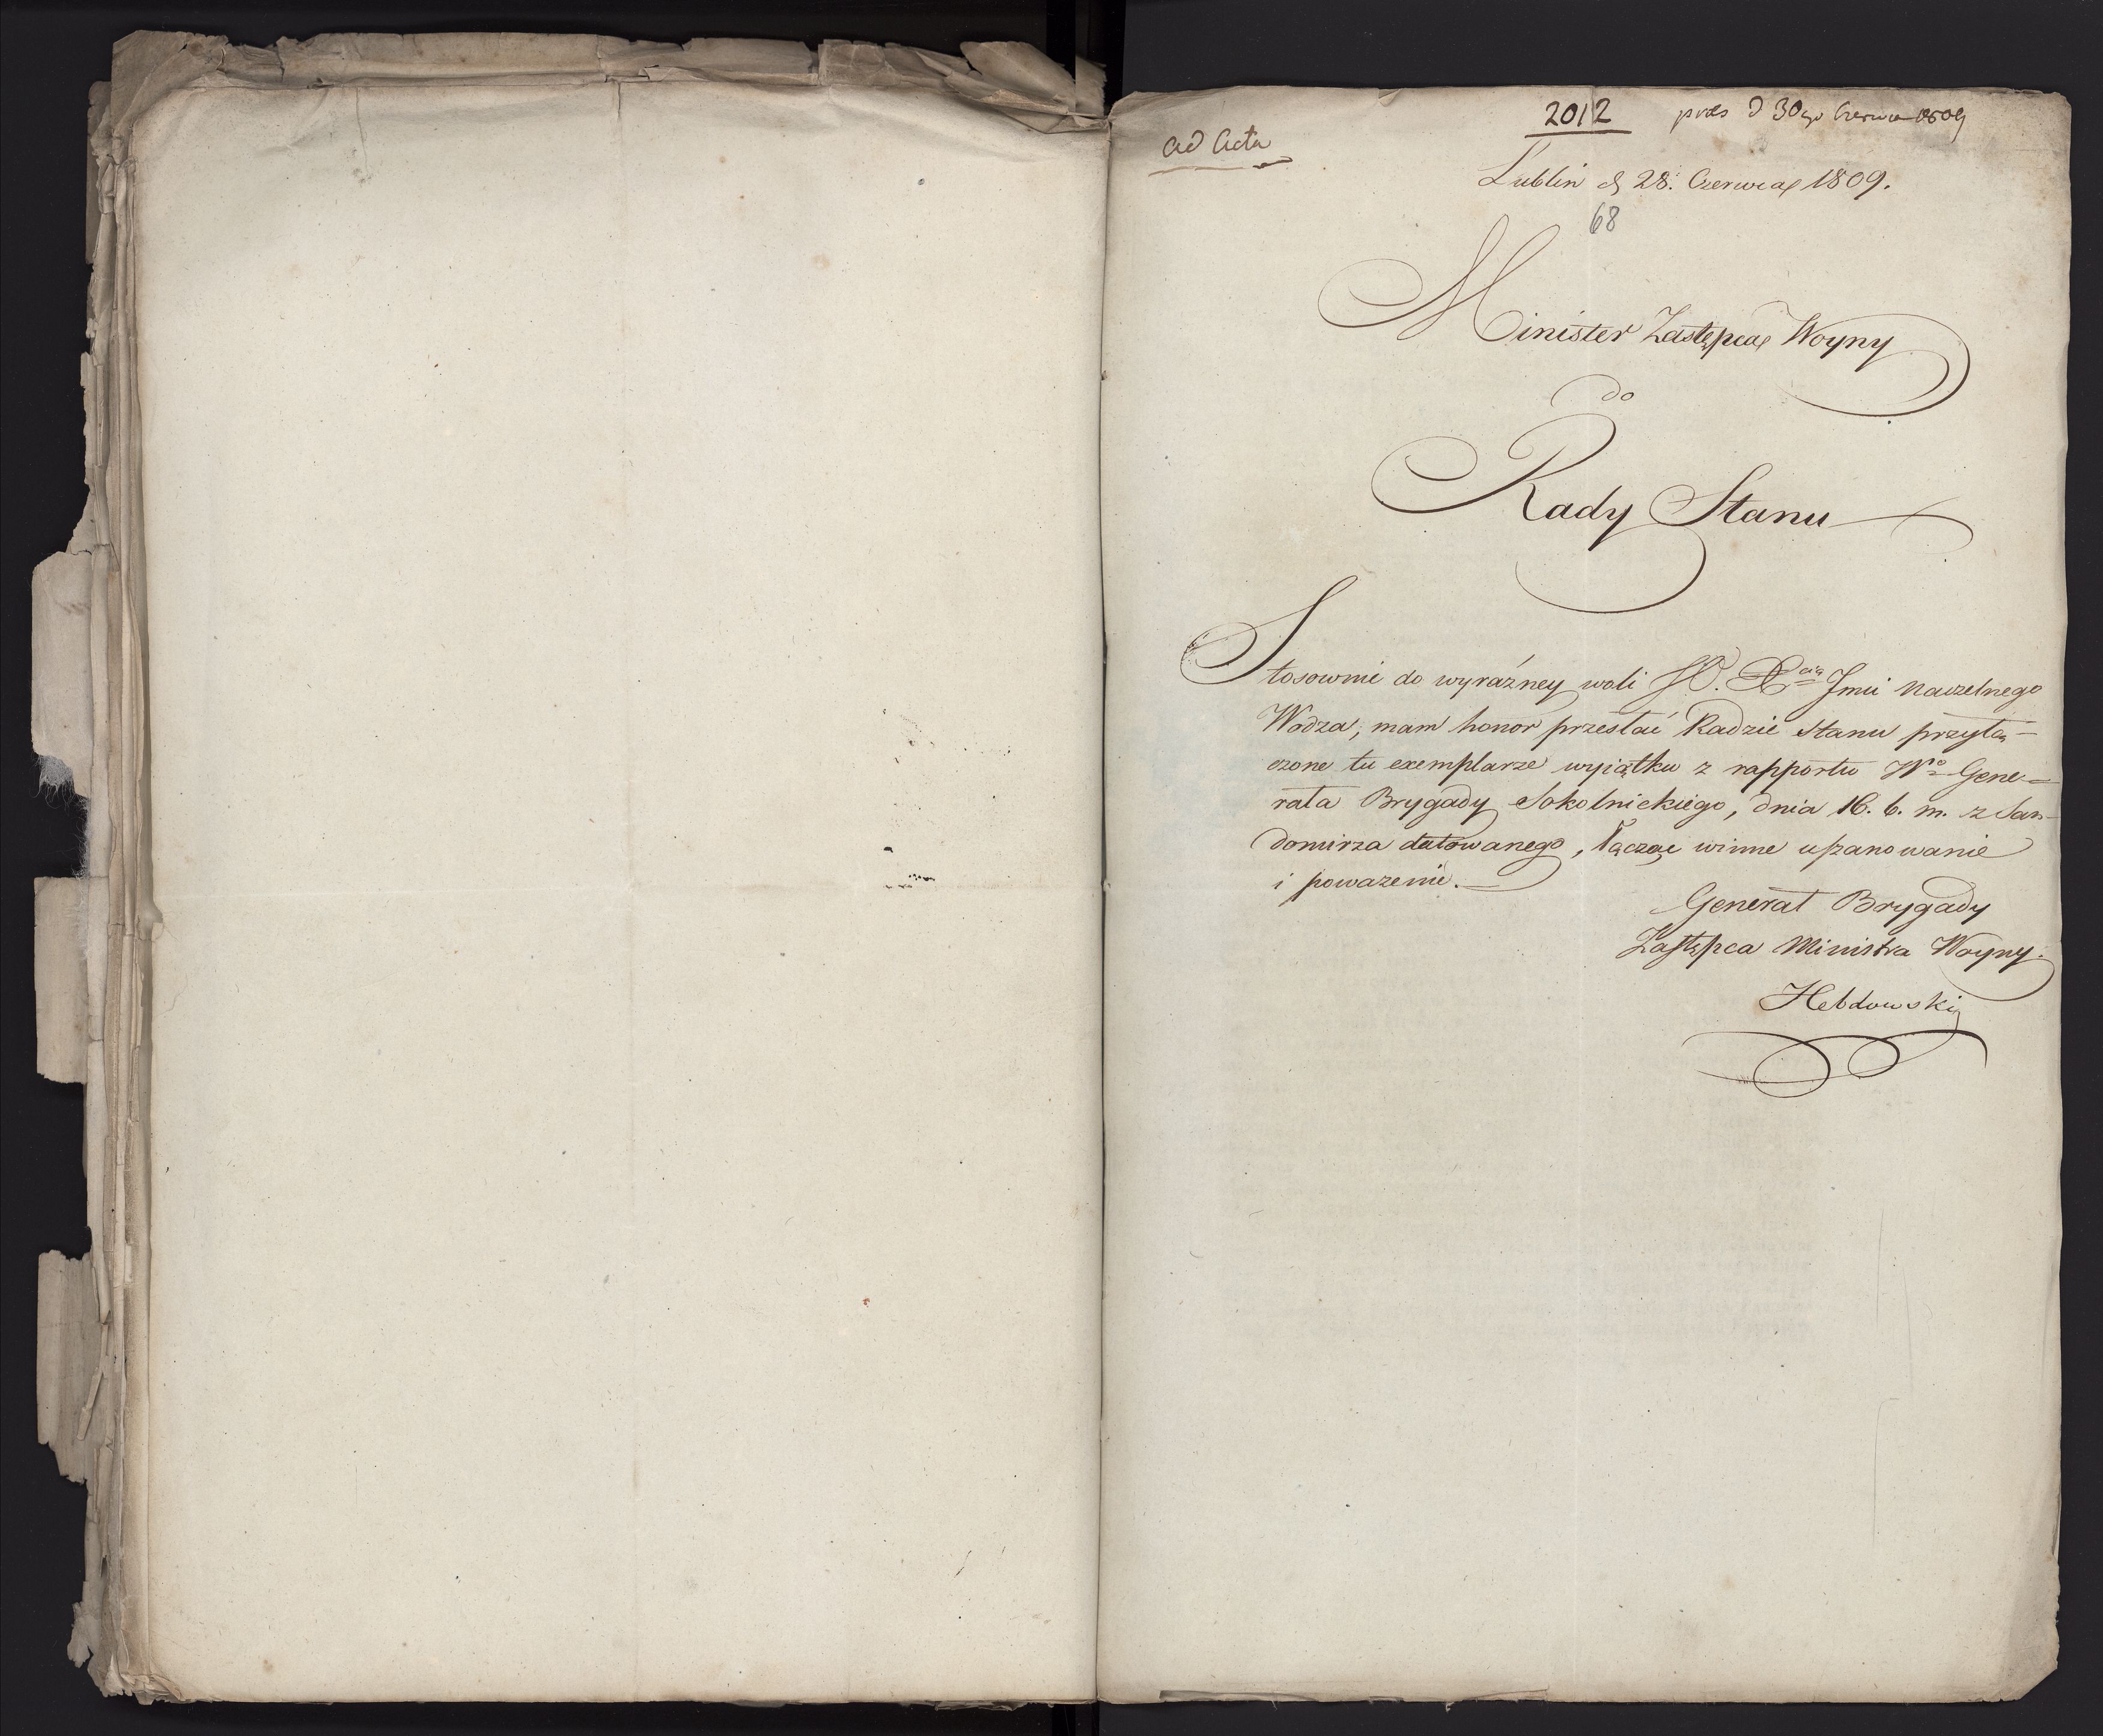 2012 præs d 30go Czerwca 1809
ad Acta
Lublin d 28. Czerwca 1809.
68
Minister Zastępca Woyny
do
Rady Stanu
Stosownie do wyraźney woli JO. Xcia Jmci Naczelnego
Wodza, mam honor przesłać Radzie Stanu przyłą-
czone tu exemplarze wyiątku z rapportu Wo Gene-
rała Brygady Sokolnickiego, dnia 16. b. m. z San-
domirza datowanego, łącząc winne uszanowanie
i poważenie.
Generał Brygady
Zastępca Ministra Woyny.
Hebdowski